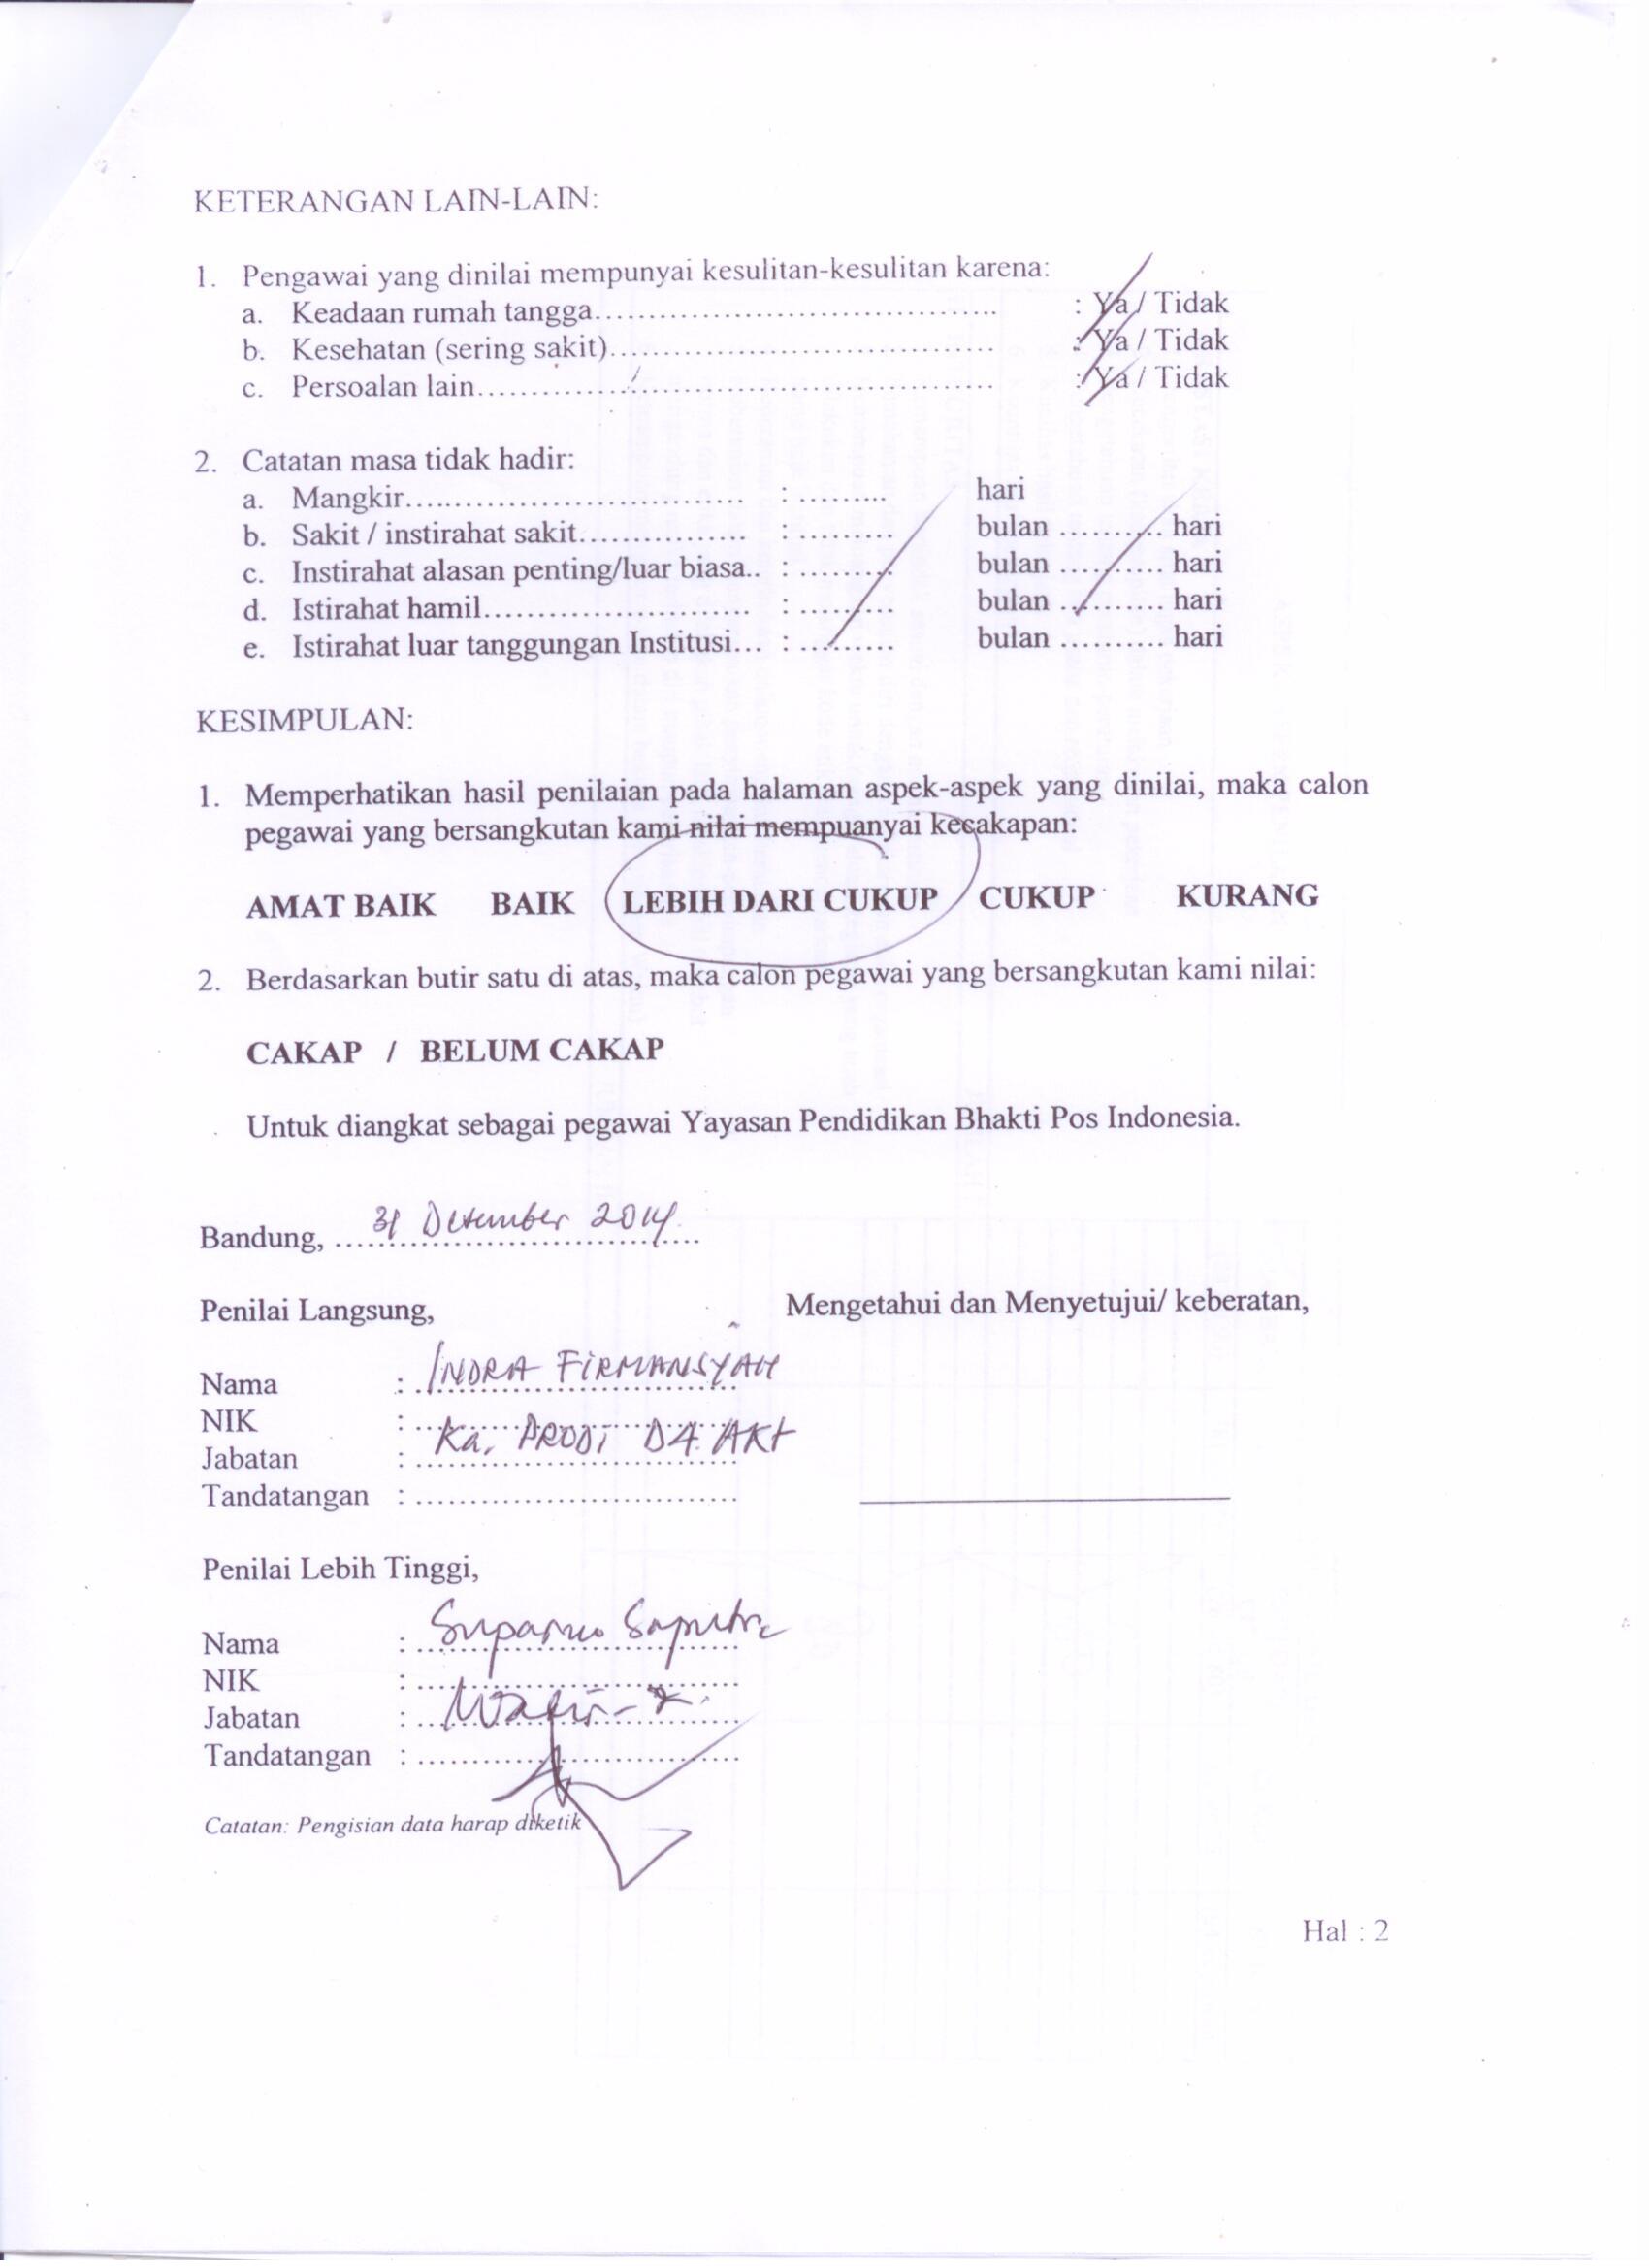 KETERANGAN LAIN-LAIN:
1. Pengawai yang dinilai mempunyai kesulitan-kesulitan karena:
a. Keadaan rumah tangga..................................... : Ya / Tidak
b. Kesehatan (sering sakit)................................... : Ya / Tidak
c. Persoalan lain............................................... : Ya / Tidak
2. Catatan masa tidak hadir:
a. Mangkir............................... : ......... hari
b. Sakit / instirahat sakit................ : ......... bulan .......... hari
c. Instirahat alasan penting/luar biasa.. : ......... bulan .......... hari
d. Istirahat hamil......................... : ......... bulan .......... hari
e. Istirahat luar tanggungan Institusi... : ......... bulan .......... hari
KESIMPULAN:
1. Memperhatikan hasil penilaian pada halaman aspek-aspek yang dinilai, maka calon
pegawai yang bersangkutan kami nilai mempuanyai kecakapan:
AMAT BAIK BAIK LEBIH DARI CUKUP CUKUP KURANG
2. Berdasarkan butir satu di atas, maka calon pegawai yang bersangkutan kami nilai:
CAKAP / BELUM CAKAP
Untuk diangkat sebagai pegawai Yayasan Pendidikan Bhakti Pos Indonesia.
Bandung, 31 Desember 2014
Penilai Langsung, Mengetahui dan Menyetujui/ keberatan,
Nama : INDRA FIRMANSYAH
NIK : ..............................
Jabatan : Ka. PRODI D4 AKT
Tandatangan : ..............................
Penilai Lebih Tinggi,
Nama : Suparno Saputra
NIK : ..............................
Jabatan :
Tandatangan : ..............................
Catatan: Pengisian data harap diketik
Hal : 2